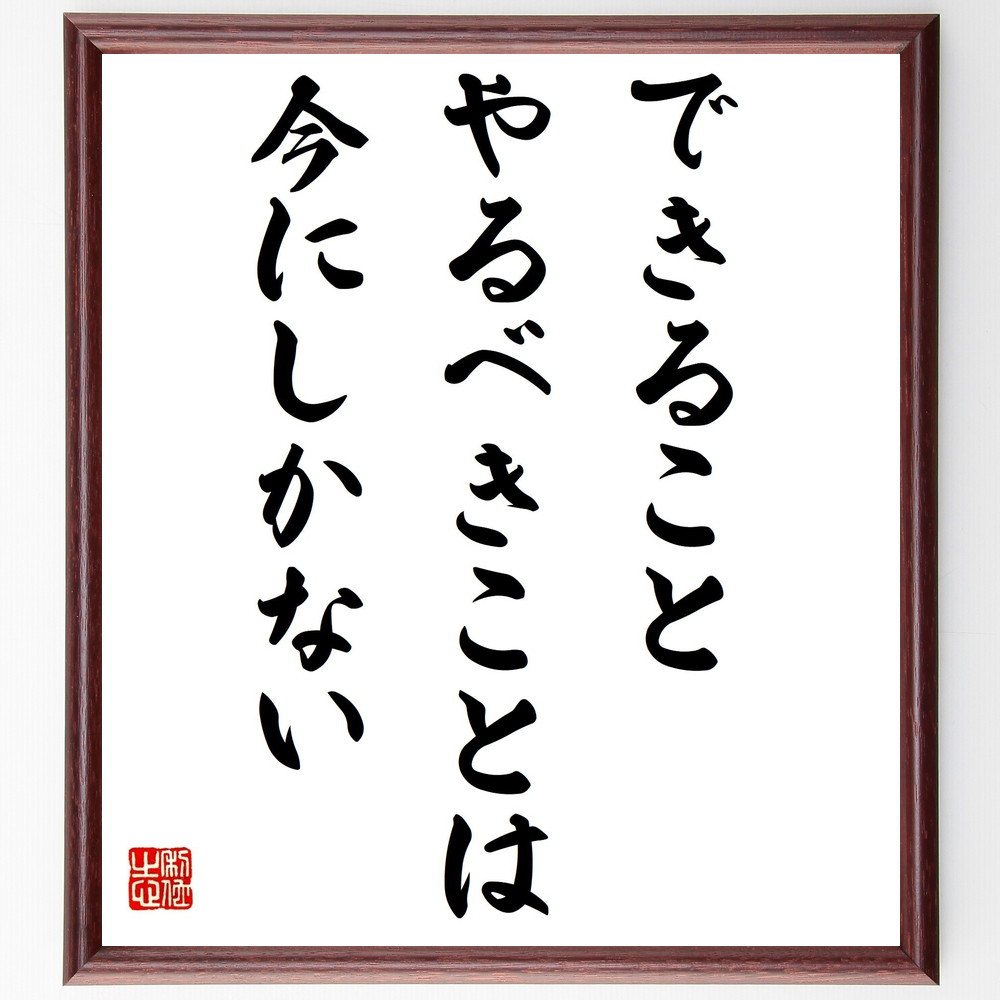 できること
やるべきことは
今にしかない